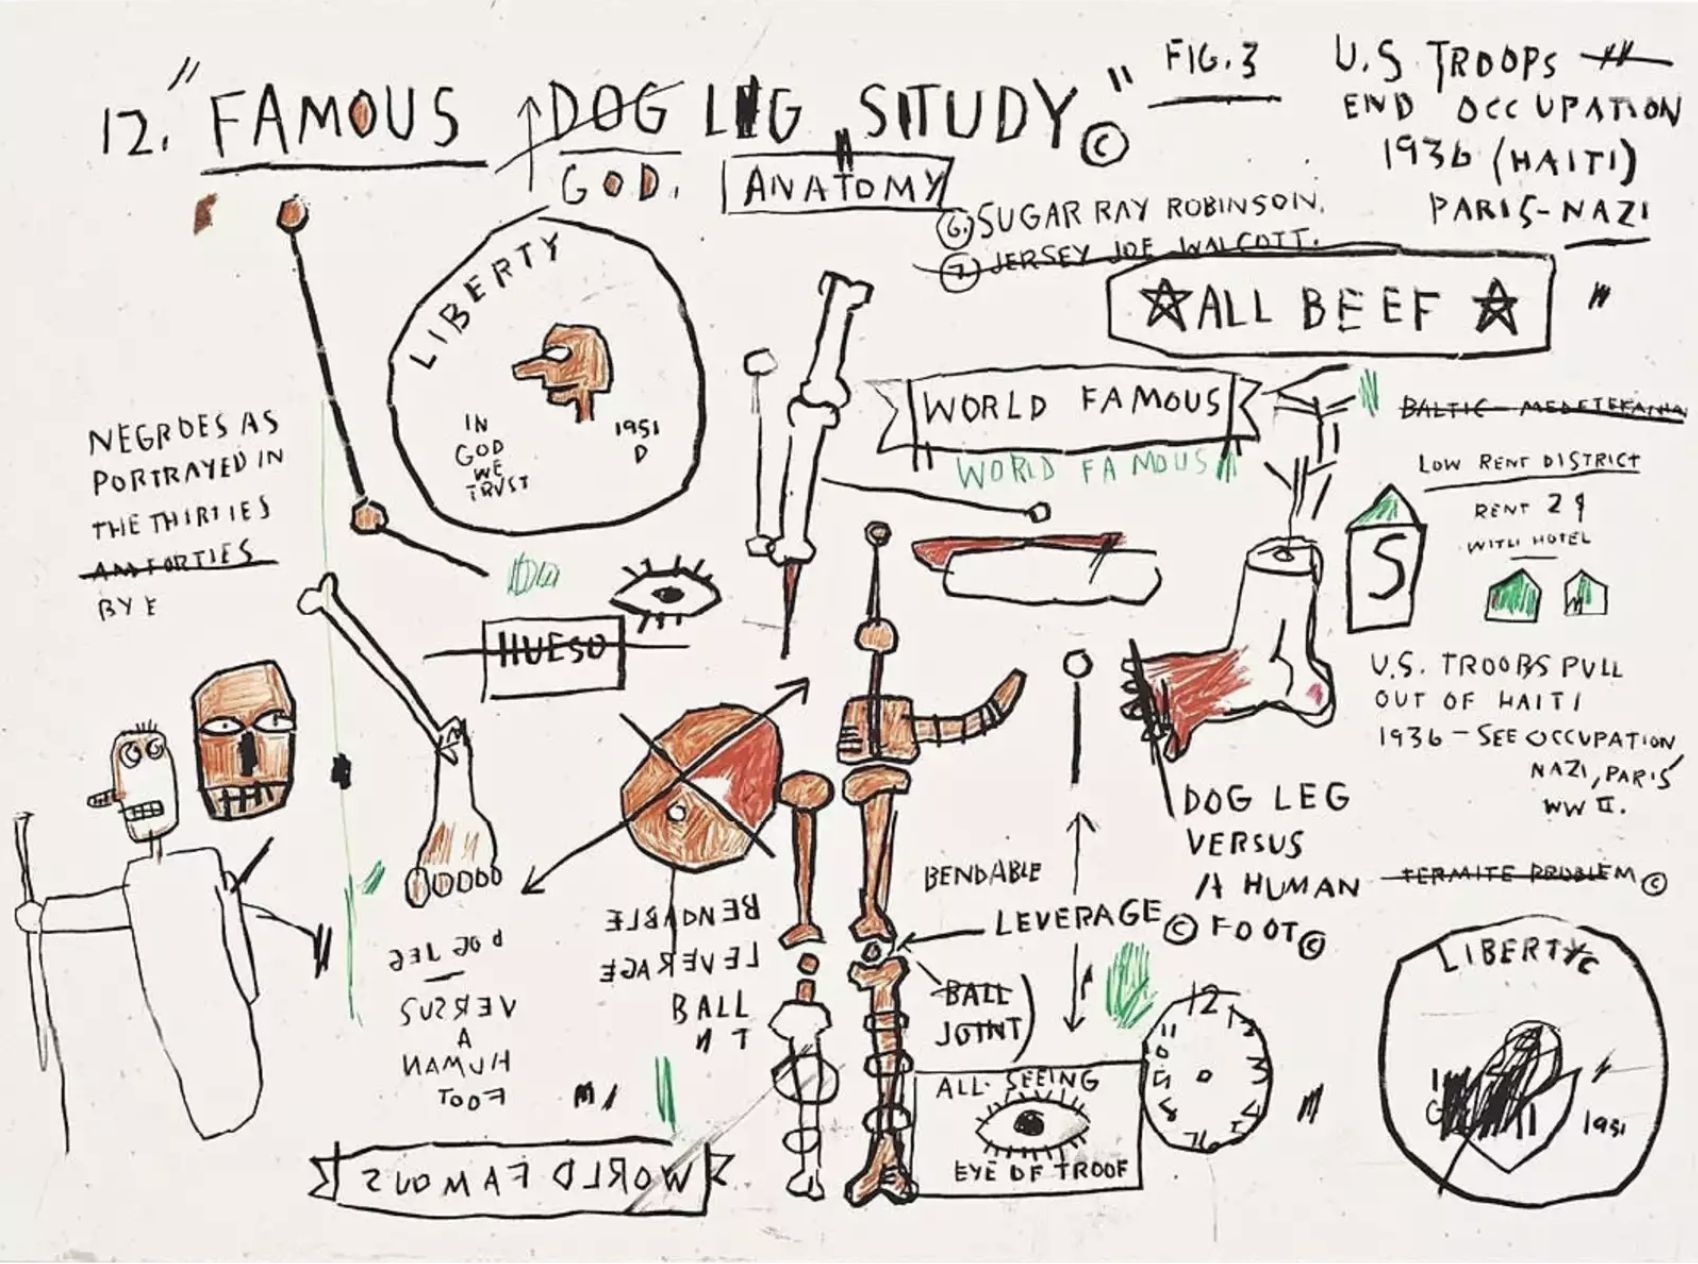 12. "FAMOUS DOG LEG STUDY" ©
GOD.
ANATOMY
FIG. 3
U.S TROOPS
END OCCUPATION
1936 (HAITI)
PARIS-NAZI
6. SUGAR RAY ROBINSON.
7. JERSEY JOE WALCOTT.
ALL BEEF
LIBERTY
IN
GOD
WE
TRUST
1951
D
WORLD FAMOUS
WORLD FAMOUS
LOW RENT DISTRICT
RENT 29
WITH HOTEL
S
NEGROES AS
PORTRAYED IN
THE THIRTIES
AND FORTIES
BY E
HUESO
U.S. TROOPS PULL
OUT OF HAITI
1936 - SEE OCCUPATION,
NAZI, PARIS
WW II.
DOG LEG
VERSUS
A HUMAN
FOOT ©
TERMITE PROBLEM ©
BENDABLE
LEVERAGE ©
BALL
JOINT
BENDABLE
LEVERAGE
BALL
DOG LEG
VERSUS
A
HUMAN
FOOT
ALL-SEEING
EYE OF TROOF
12
LIBERTY
1951
WORLD FAMOUS